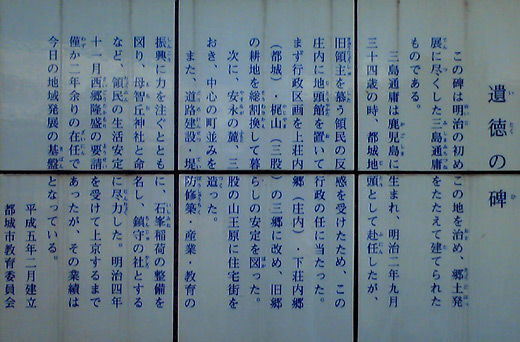 遺徳の碑
この碑は明治の初めこの地を治め、郷土発
展に尽くした三島通庸をたたえて建てられた
ものである。
三島通庸は鹿児島に生まれ、明治二年九月
三十四歳の時、都城地頭として赴任したが、
旧領主を慕う領民の反感を受けたため、この
庄内に地頭館を置いて行政の任に当たった。
まず行政区画を上荘内郷（庄内）・下荘内郷
（都城）・梶山（三股）の三郷に改め、旧郷
の耕地を総割換して暮らしの安定を図った。
次に、安永の麓、三股の山王原に住宅街を
おき、中心の町並みを造った。
また、道路建設、堤防修築、産業・教育の
振興に力を注ぐとともに、石峯稲荷の整備を
図り、母智丘神社と命名し、鎮守の社とする
など、領民の生活安定に尽力した。明治四年
十一月西郷隆盛の要請を受けて上京するまで
僅か二年余りの在任であったが、その業績は
今日の地域発展の基盤となっている。
平成五年二月建立
都城市教育委員会